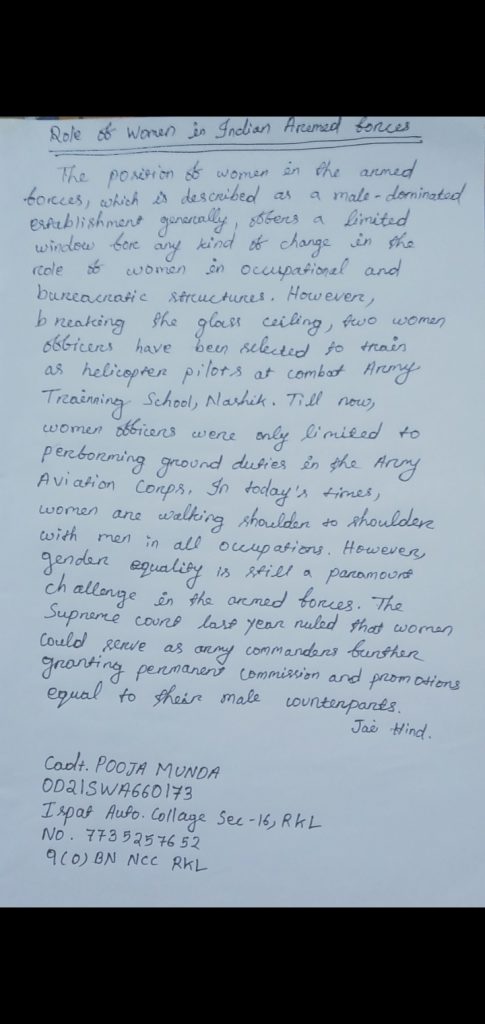 Role of Women in Indian Aremed forces
The position of women in the armed
forces, which is described as a male-dominated
establishment generally, offers a limited
window fore any kind of change in the
role of women in occupational and
bureacratic structures. However,
breaking the glass ceiling, two women
officers have been selected to train
as helicopter pilots at combat Army
Trainning School, Nashik. Till now,
women officers were only limited to
performing ground duties in the Army
Aviation Corps. In today's times,
women are walking shoulder to shoulder
with men in all occupations. However,
gender equality is still a paramount
challenge in the armed forces. The
Supreme court last year ruled that women
could serve as army commanders further
granting permanent commission and promotions
equal to their male counterparts.
Jai Hind.
Cadt. POOJA MUNDA
OD21SWA660173
Ispat Auto. Collage Sec-16, RKL
NO. 7735257652
9(O) BN NCC RKL